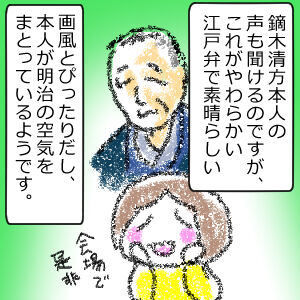 鏑木清方本人の
声も聞けるのですが、
これがやわらかい
江戸弁で素晴らしい
画風とぴったりだし、
本人が明治の空気を
まとっているようです。
会場で
是非